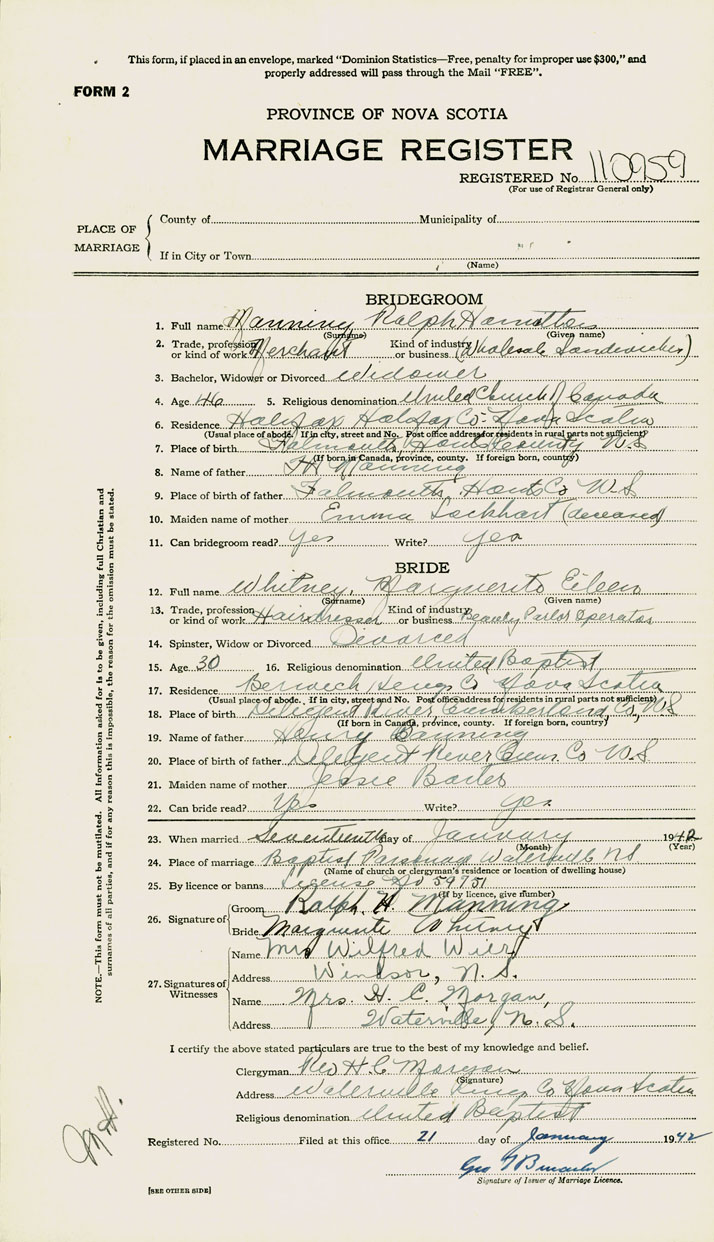 This form, if placed in an envelope, marked "Dominion Statistics—Free, penalty for improper use $300," and
properly addressed will pass through the Mail "FREE".
FORM 2
PROVINCE OF NOVA SCOTIA
MARRIAGE REGISTER
REGISTERED No. 110959
(For use of Registrar General only)
PLACE OF MARRIAGE
County of Municipality of
If in City or Town
(Name)
BRIDEGROOM
1. Full name Manning Ralph Hamilton
(Surname) (Given name)
2. Trade, profession or kind of work Merchant Kind of industry or business (Wholesale Sandwiches)
3. Bachelor, Widower or Divorced Widower
4. Age 46 5. Religious denomination United Church of Canada
6. Residence Halifax Halifax Co. Nova Scotia
(Usual place of abode. If in city, street and No. Post office address for residents in rural parts not sufficient)
7. Place of birth Falmouth, Hants County N.S
(If born in Canada, province, county. If foreign born, country)
8. Name of father Manning
9. Place of birth of father Falmouth Hants Co N.S
10. Maiden name of mother Emma Lockhart (deceased)
11. Can bridegroom read? Yes Write? Yes
BRIDE
12. Full name Whitney, Marguerite Eileen
(Surname) (Given name)
13. Trade, profession or kind of work Hairdresser Kind of industry or business Beauty Parlor Operator
14. Spinster, Widow or Divorced Divorced
15. Age 30 16. Religious denomination United Baptist
17. Residence Berwick Kings Co Nova Scotia
(Usual place of abode. If in city, street and No. Post office address for residents in rural parts not sufficient)
18. Place of birth Diligent River, Cumberland, Co, N.S
(If born in Canada, province, county. If foreign born, country)
19. Name of father Henry
20. Place of birth of father Diligent River Cum. Co N.S
21. Maiden name of mother Jessie
22. Can bride read? Yes Write? Yes
23. When married Seventeenth day of January 1942
(Month) (Year)
24. Place of marriage Baptist Parsonage Waterville NS
(Name of church or clergyman's residence or location of dwelling house)
25. By licence or banns License No 59751
(If by licence, give number)
26. Signature of Groom Ralph H. Manning
Bride Marguerite Whitney
27. Signatures of Witnesses
Name Mrs Wilfred Wier
Address Windsor, N. S.
Name Mrs. H. C. Morgan,
Address Waterville, N. S.
I certify the above stated particulars are true to the best of my knowledge and belief.
Clergyman Rev H. C Morgan
(Signature)
Address Waterville Kings Co Nova Scotia
Religious denomination United Baptist
Registered No. Filed at this office 21 day of January 1942
Geo
Signature of Issuer of Marriage Licence.
[SEE OTHER SIDE]
NOTE.—This form must not be mutilated. All information asked for is to be given, including full Christian and
surnames of all parties, and if for any reason this is impossible, the reason for the omission must be stated.